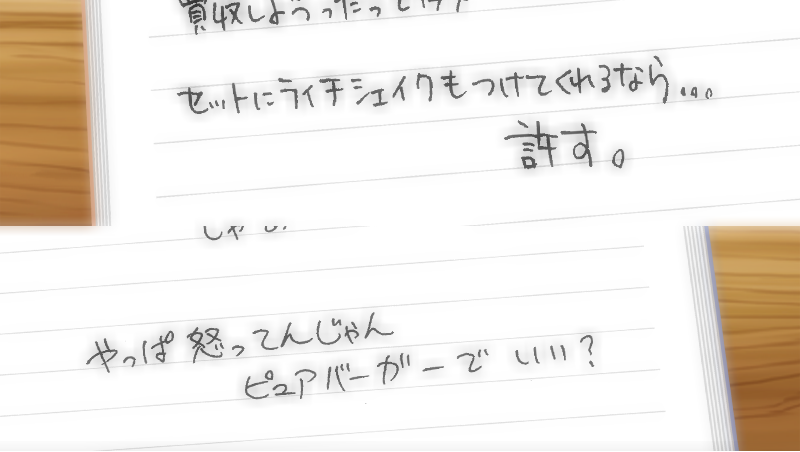 買収しようったって
セットにライチシェイクもつけてくれるなら...
許す。
やっぱ怒ってんじゃん
ピュアバーガーでいい?